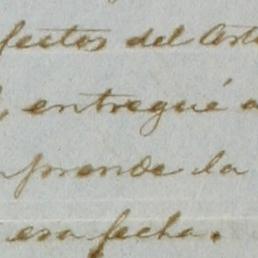 fectos del Arti
, entregué a
prende la
esa fecha.